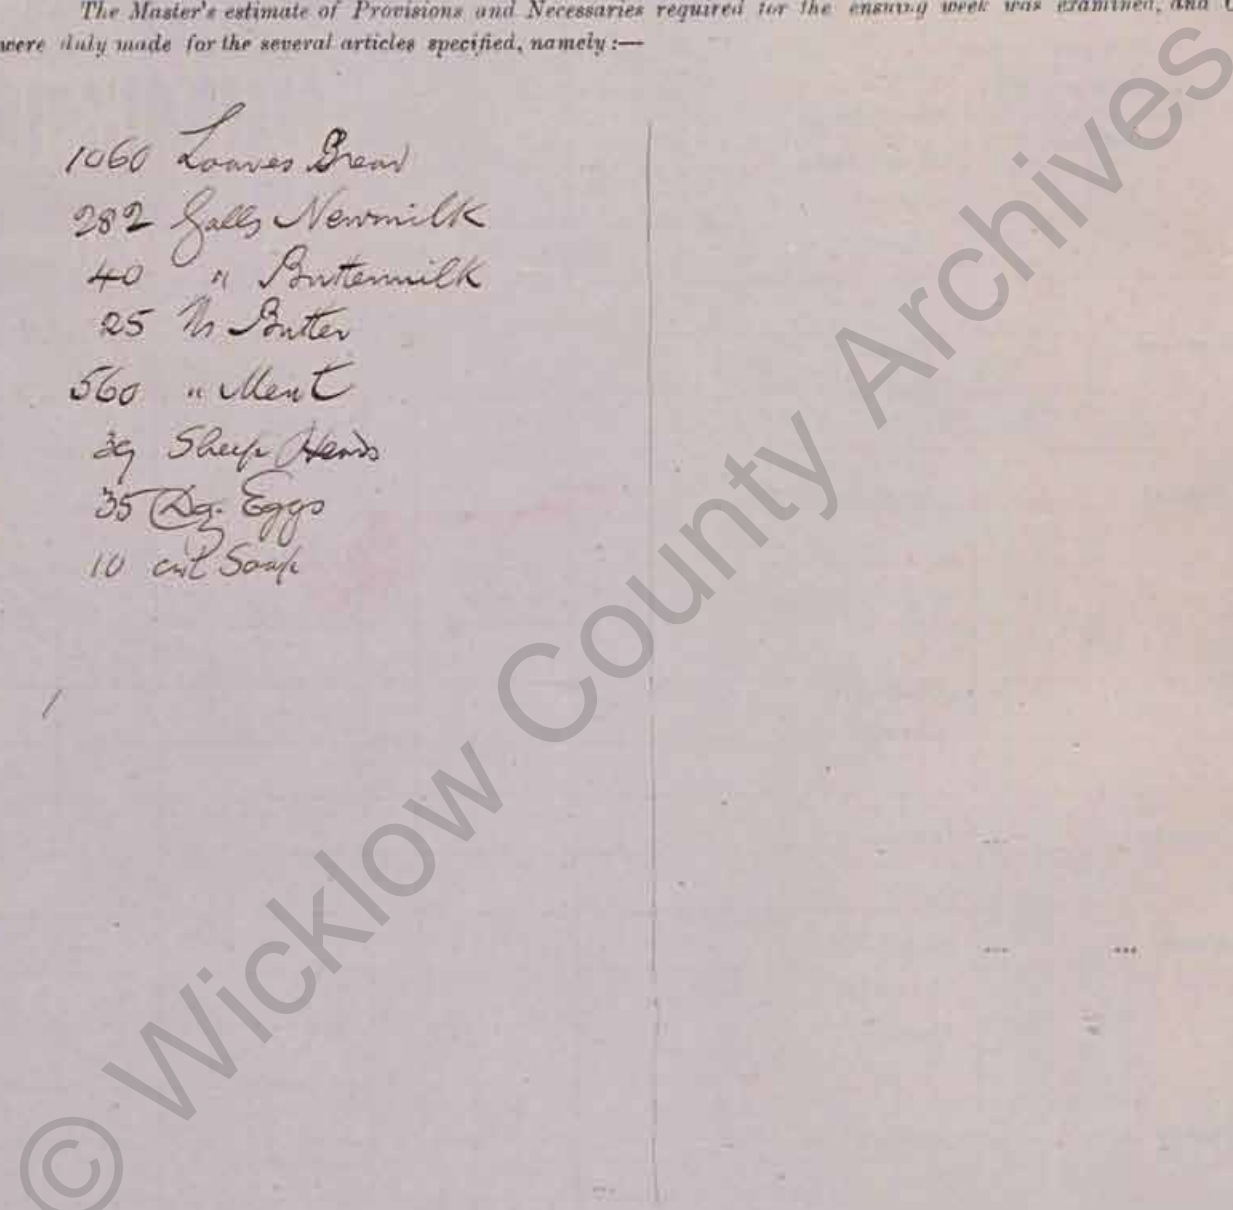 The Master's estimate of Provisions and Necessaries required for the ensuing week was examined, and
were duly made for the several articles specified, namely :—
1060 Loaves Bread
282 Galls Newmilk
40 " Buttermilk
25 lbs Butter
560 " Meat
39 Sheep Heads
35 Dz. Eggs
10 cwt Soap
© Wicklow County Archives